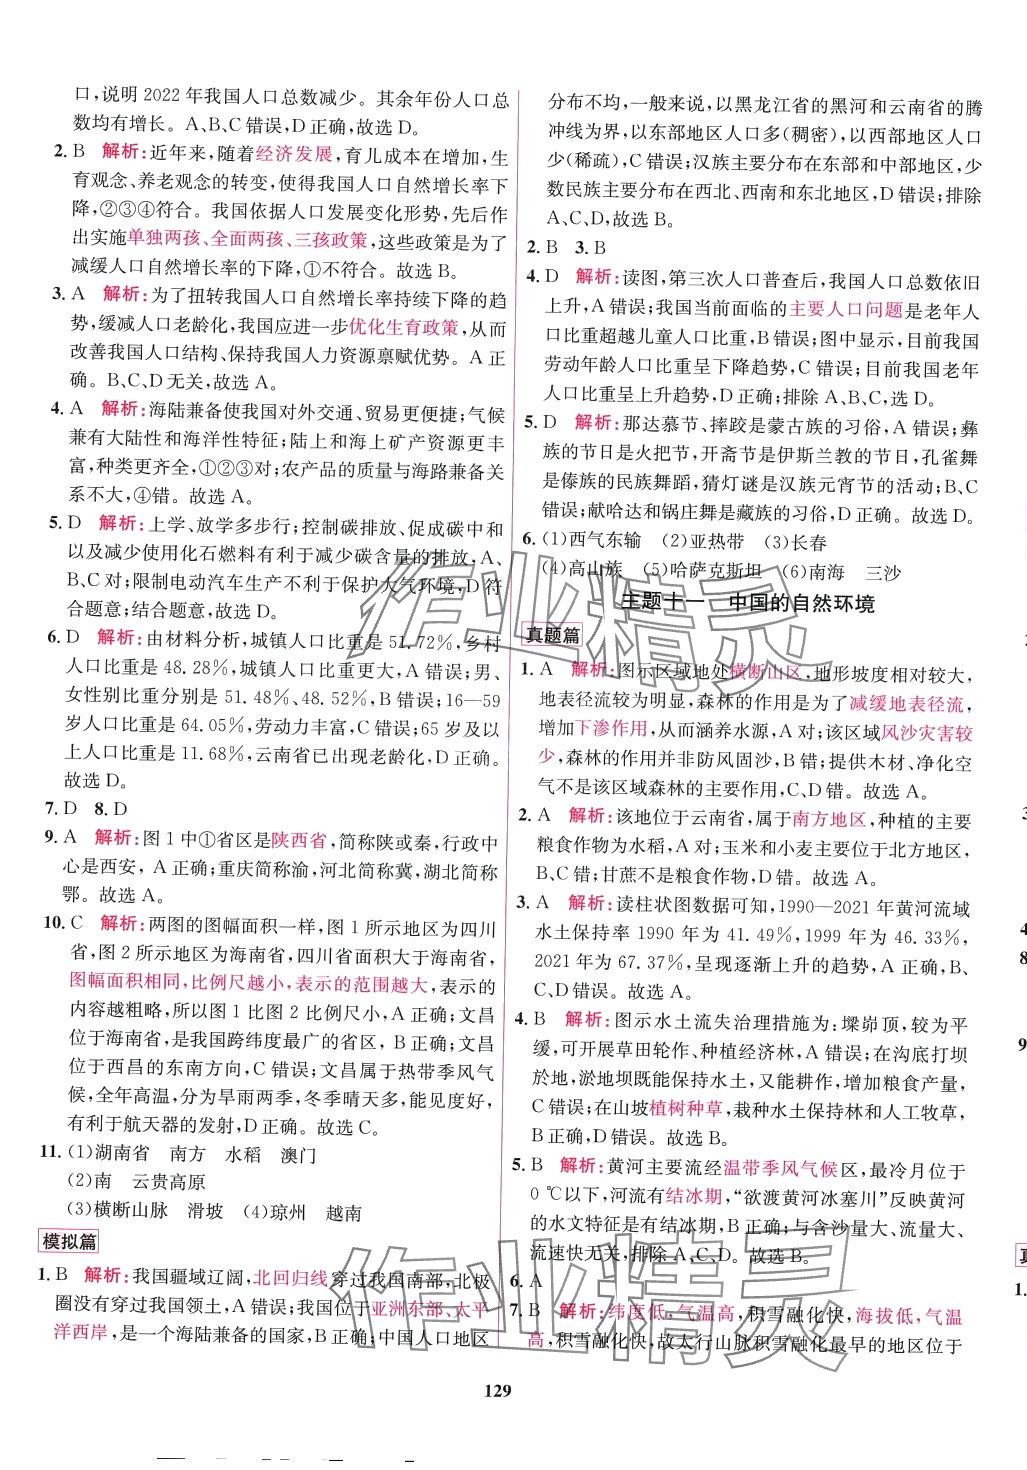 口,说明 2022 年我国人口总数减少。其余年份人口总
数均有增长。A、B、C 错误,D 正确,故选 D。
2. B 解析:近年来,随着经济发展,育儿成本在增加,生
育观念、养老观念的转变,使得我国人口自然增长率下
降,②③④符合。我国依据人口发展变化形势,先后作
出实施单独两孩、全面两孩、三孩政策,这些政策是为了
减缓人口自然增长率的下降,①不符合。故选 B。
3. A 解析:为了扭转我国人口自然增长率持续下降的趋
势,缓减人口老龄化,我国应进一步优化生育政策,从而
改善我国人口结构、保持我国人力资源禀赋优势。A 正
确。B、C、D 无关,故选 A。
4. A 解析:海陆兼备使我国对外交通、贸易更便捷;气候
兼有大陆性和海洋性特征;陆上和海上矿产资源更丰
富,种类更齐全,①②③对;农产品的质量与海路兼备关
系不大,④错。故选 A。
5. D 解析:上学、放学多步行;控制碳排放、促成碳中和
以及减少使用化石燃料有利于减少碳含量的排放,A、
B、C 对;限制电动汽车生产不利于保护大气环境,D 符
合题意;结合题意,故选 D。
6. D 解析:由材料分析,城镇人口比重是 51.72%,乡村
人口比重是 48.28%,城镇人口比重更大,A 错误;男、
女性别比重分别是 51.48%、48.52%,B 错误;16—59
岁人口比重是 64.05%,劳动力丰富,C 错误;65 岁及以
上人口比重是 11.68%,云南省已出现老龄化,D 正确。
故选 D。
7. D 8. D
9. A 解析:图 1 中①省区是陕西省,简称陕或秦,行政中
心是西安, A 正确;重庆简称渝,河北简称冀,湖北简称
鄂。故选 A。
10. C 解析:两图的图幅面积一样,图 1 所示地区为四川
省,图 2 所示地区为海南省,四川省面积大于海南省,
图幅面积相同,比例尺越小,表示的范围越大,表示的
内容越粗略,所以图 1 比图 2 比例尺小,A 正确;文昌
位于海南省,是我国跨纬度最广的省区, B 正确;文昌
位于西昌的东南方向,C 错误;文昌属于热带季风气
候,全年高温,分为旱雨两季,冬季晴天多,能见度好,
有利于航天器的发射,D 正确。故选 C。
11. (1)湖南省 南方 水稻 澳门
(2)南 云贵高原
(3)横断山脉 滑坡 (4)琼州 越南
模拟篇
1. B 解析:我国疆域辽阔,北回归线穿过我国南部,北极
圈没有穿过我国领土,A 错误;我国位于亚洲东部、太平
洋西岸,是一个海陆兼备的国家,B 正确;中国人口地区
分布不均,一般来说,以黑龙江省的黑河和云南省的腾
冲线为界,以东部地区人口多(稠密),以西部地区人口
少(稀疏),C 错误;汉族主要分布在东部和中部地区,少
数民族主要分布在西北、西南和东北地区,D 错误;排除
A、C、D,故选 B。
2. B 3. B
4. D 解析:读图,第三次人口普查后,我国人口总数依旧
上升,A 错误;我国当前面临的主要人口问题是老年人
口比重超越儿童人口比重,B 错误;图中显示,目前我国
劳动年龄人口比重呈下降趋势,C 错误;目前我国老年
人口比重呈上升趋势,D 正确;排除 A、B、C,选 D。
5. D 解析:那达慕节、摔跤是蒙古族的习俗,A 错误;彝
族的节日是火把节,开斋节是伊斯兰教的节日,孔雀舞
是傣族的民族舞蹈,猜灯谜是汉族元宵节的活动;B、C
错误;献哈达和锅庄舞是藏族的习俗,D 正确。故选 D。
6. (1)西气东输 (2)亚热带 (3)长春
(4)高山族 (5)哈萨克斯坦 (6)南海 三沙
主题十一 中国的自然环境
真题篇
1. A 解析:图示区域地处横断山区,地形坡度相对较大,
地表径流较为明显,森林的作用是为了减缓地表径流,
增加下渗作用,从而涵养水源,A 对;该区域风沙灾害较
少,森林的作用并非防风固沙,B 错;提供木材、净化空
气不是该区域森林的主要作用,C、D 错。故选 A。
2. A 解析:该地位于云南省,属于南方地区,种植的主要
粮食作物为水稻,A 对;玉米和小麦主要位于北方地区,
B、C 错;甘蔗不是粮食作物,D 错。故选 A。
3. A 解析:读柱状图数据可知,1990—2021 年黄河流域
水土保持率 1990 年为 41.49%,1999 年为 46.33%,
2021 年为 67.37%,呈现逐渐上升的趋势,A 正确,B、
C、D 错误。故选 A。
4. B 解析:图示水土流失治理措施为:墚峁顶,较为平
缓,可开展草田轮作、种植经济林,A 错误;在沟底打坝
於地,淤地坝既能保持水土,又能耕作,增加粮食产量,
C 错误;在山坡植树种草,栽种水土保持林和人工牧草,
B 正确,D 错误。故选 B。
5. B 解析:黄河主要流经温带季风气候区,最冷月位于
0 ℃以下,河流有结冰期,“欲渡黄河冰塞川”反映黄河
的水文特征是有结冰期,B 正确;与含沙量大、流量大、
流速快无关,排除 A、C、D。故选 B。
6. A
7. B 解析:纬度低,气温高,积雪融化快,海拔低,气温
高,积雪融化快,故太行山脉积雪融化最早的地区位于
129
作业精灵
作业精灵